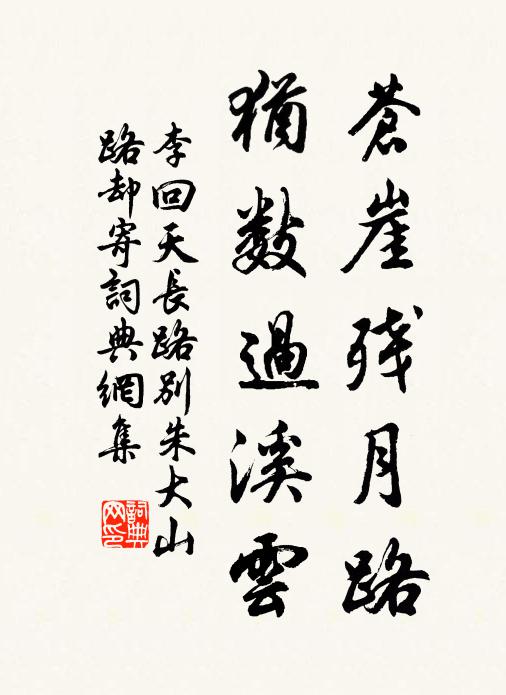 蒼崖残月路
猶數過溪雲
李回天長路別朱大山
路却寄詞典網集
詞典网印